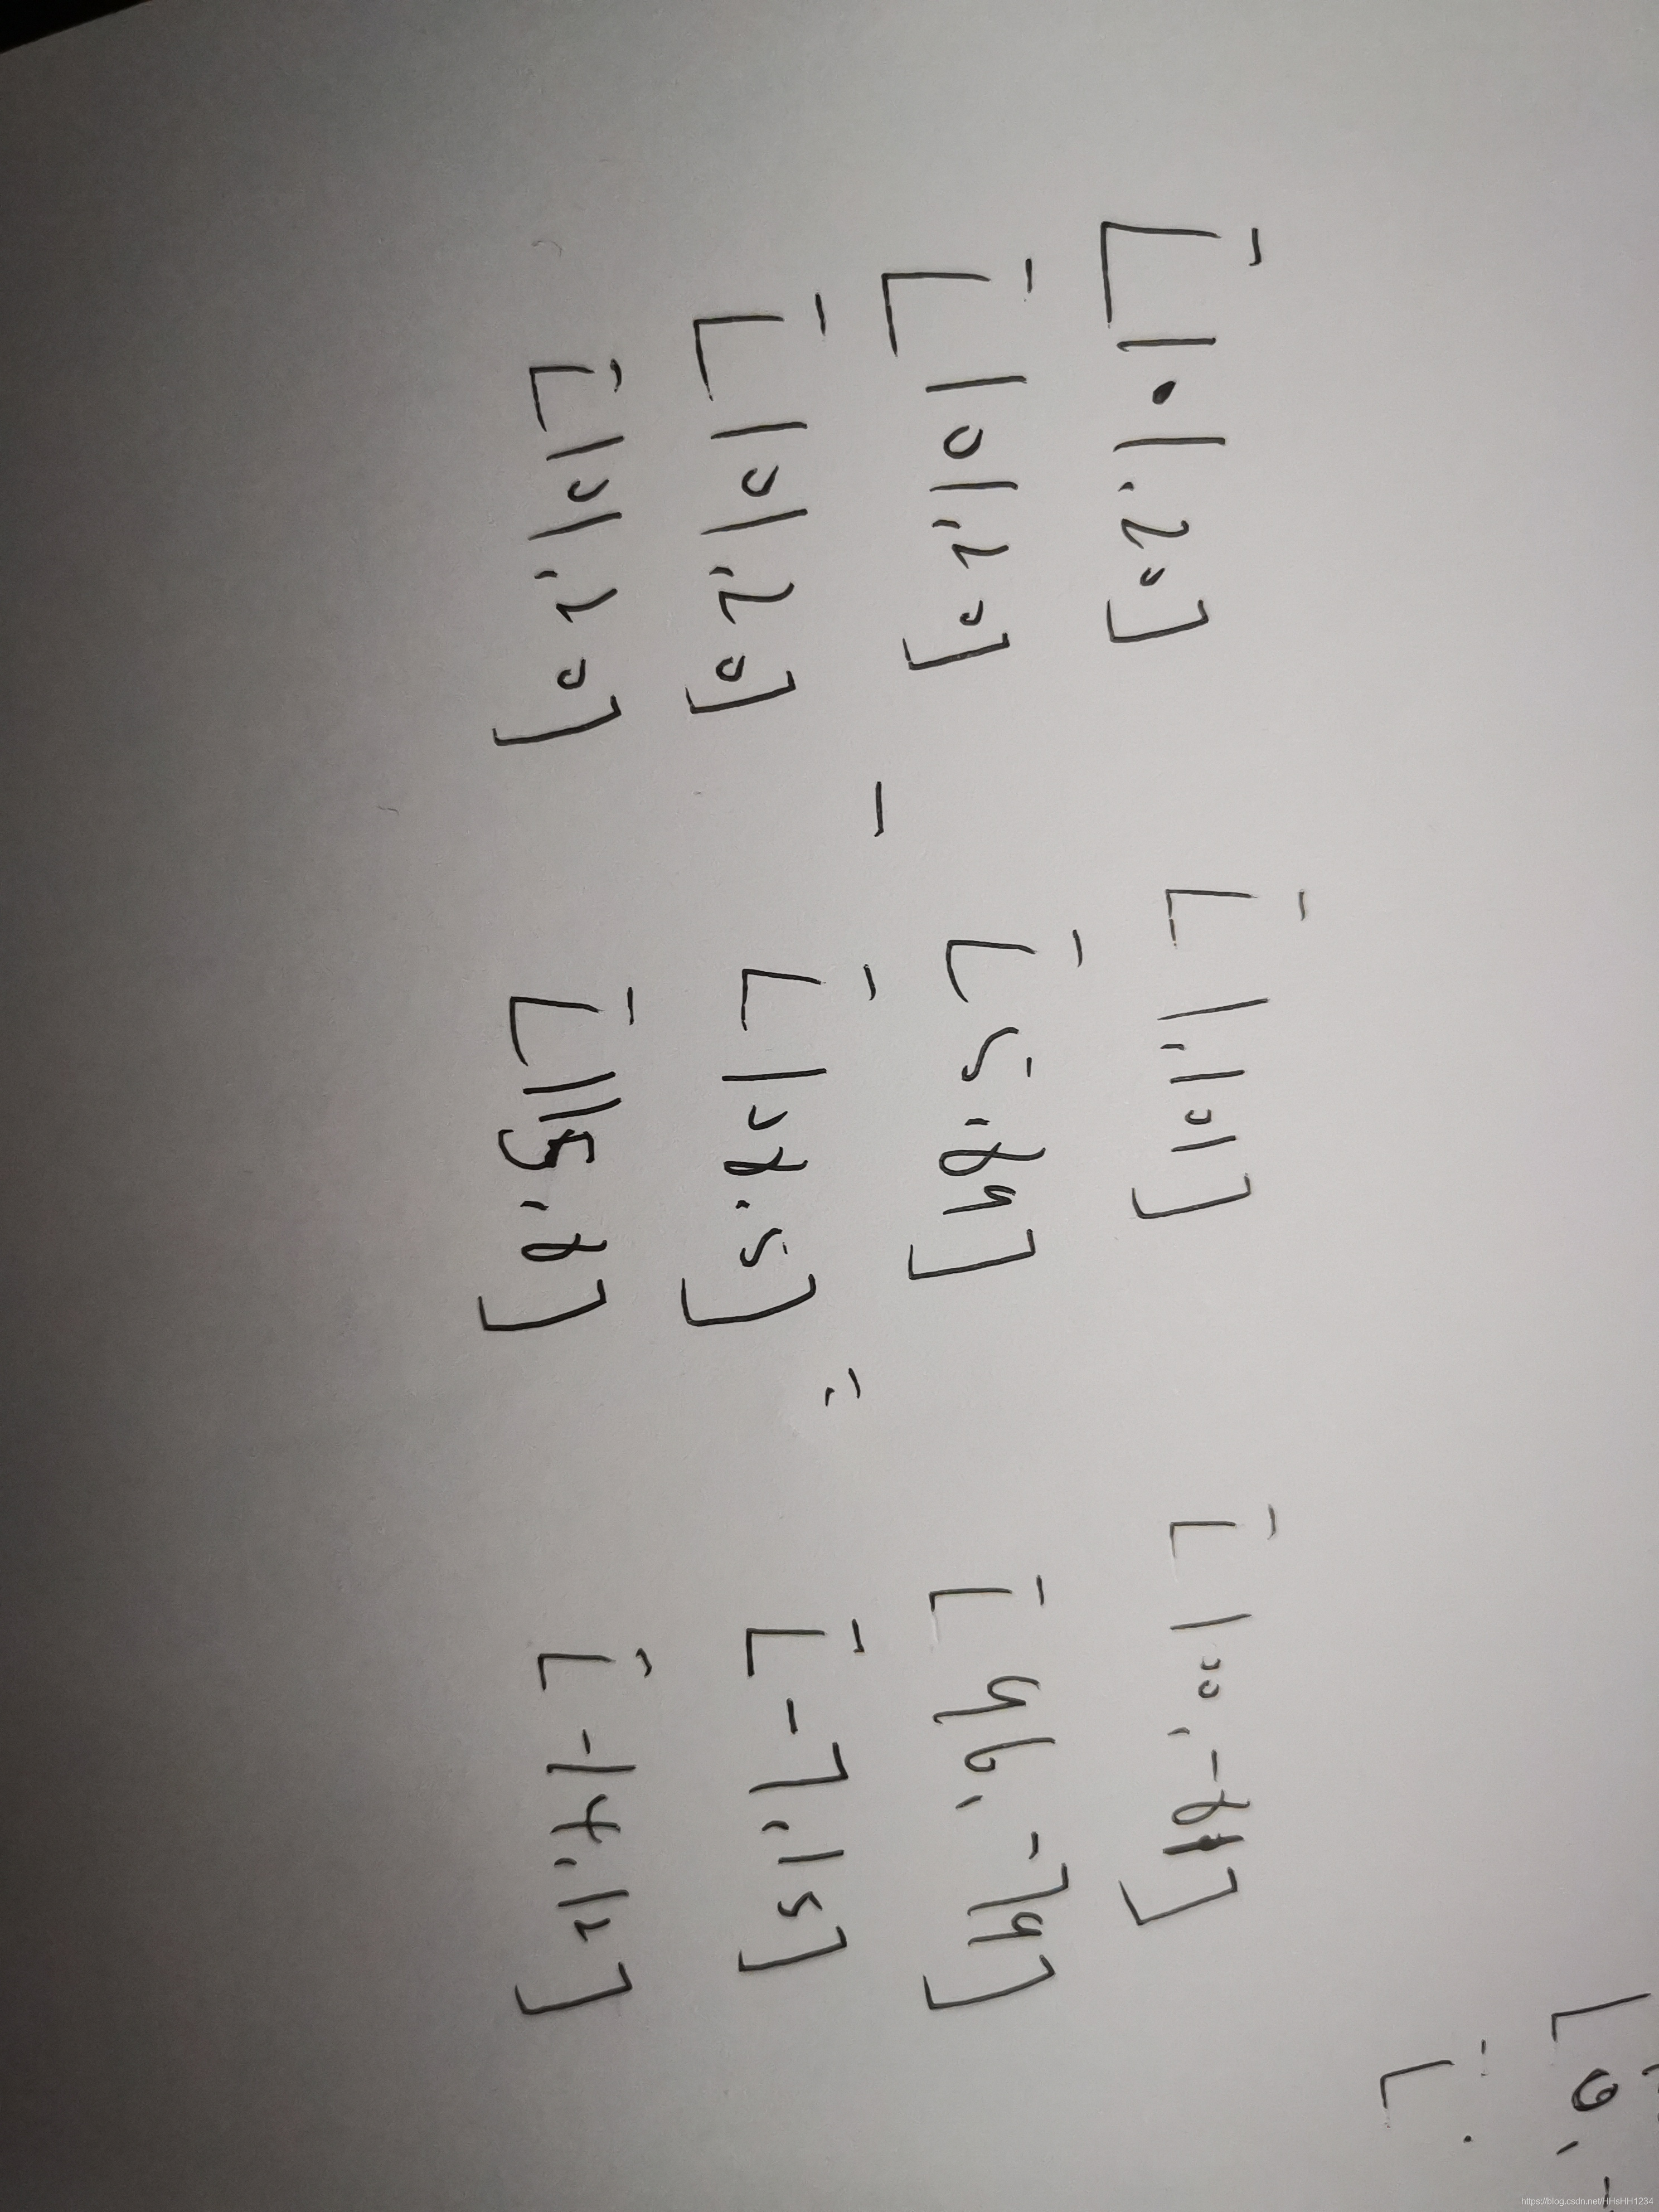 [0,
[101,20] [1,101] [100,-81]
[101,20] [5,89] [96,-79]
- =
[101,20] [108,5] [-7,15]
[101,20] [115,8] [-14,12]
https://blog.csdn.net/HHsHH1234